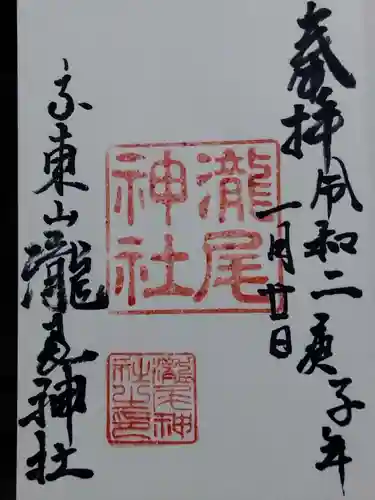 奉拝 令和二庚子年
一月廿日
瀧尾
神社
瀧尾神
社之印
京東山瀧尾神社